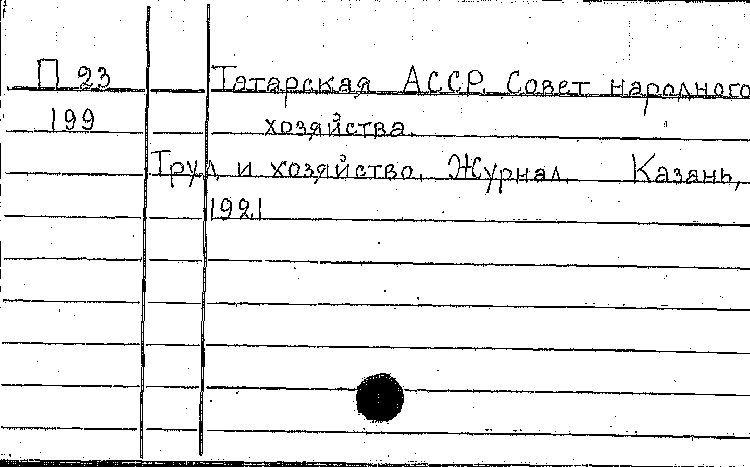 П 23 Татарская АССР. Совет народного
199 хозяйства.
Труд и хозяйство. Журнал. Казань,
1921